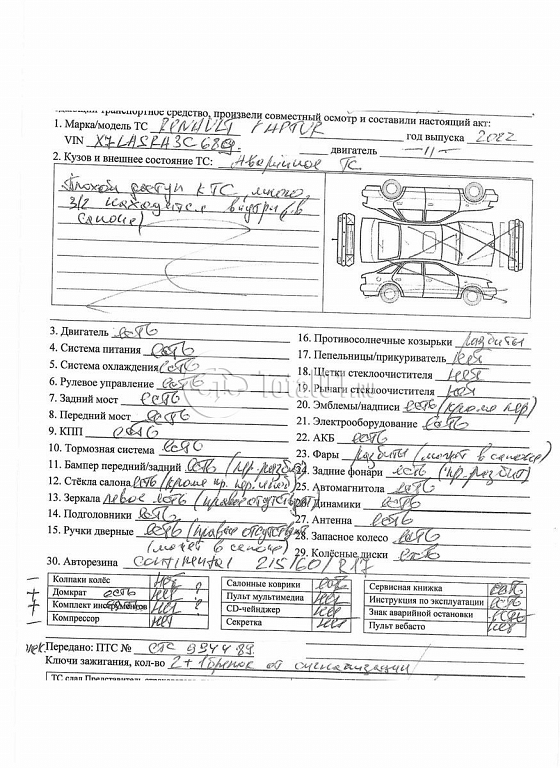 транспортное средство, произвели совместный осмотр и составили настоящий акт:
1. Марка/модель ТС RENAULT KAPTUR год выпуска 2022
VIN двигатель —//—
2. Кузов и внешнее состояние ТС: Аварийное ТС
Плохой доступ к ТС, много
з/ч находятся внутри (в
салоне)
3. Двигатель есть
4. Система питания есть
5. Система охлаждения есть
6. Рулевое управление есть
7. Задний мост есть
8. Передний мост есть
9. КПП есть
10. Тормозная система есть
11. Бампер передний/задний есть (пр. разбит)
12. Стёкла салона есть (кроме пр. пер. )
13. Зеркала левое есть (правое отсутствует)
14. Подголовники есть
15. Ручки дверные есть (правые отсутствуют
(может в салоне)
16. Противосолнечные козырьки разбиты
17. Пепельницы/прикуриватель нет
18. Щетки стеклоочистителя нет
19. Рычаги стеклоочистителя нет
20. Эмблемы/надписи есть (кроме пер)
21. Электрооборудование есть
22. АКБ есть
23. Фары разбиты (может в салоне)
24. Задние фонари есть (пр. разбит)
25. Автомагнитола есть
26. Динамики есть
27. Антенна есть
28. Запасное колесо есть
29. Колёсные диски есть
30. Авторезина Continental 215/60/R17
— Колпаки колёс нет
+ Домкрат есть нет ?
+ Комплект инструментов есть нет ?
— Компрессор нет
Салонные коврики есть
Пульт мультимедиа нет
CD-чейнджер нет
Секретка нет
Сервисная книжка есть
Инструкция по эксплуатации есть
Знак аварийной остановки есть
Пульт вебасто нет
Передано: ПТС № СТС
Ключи зажигания, кол-во 2 + 1 брелок от сигнализации